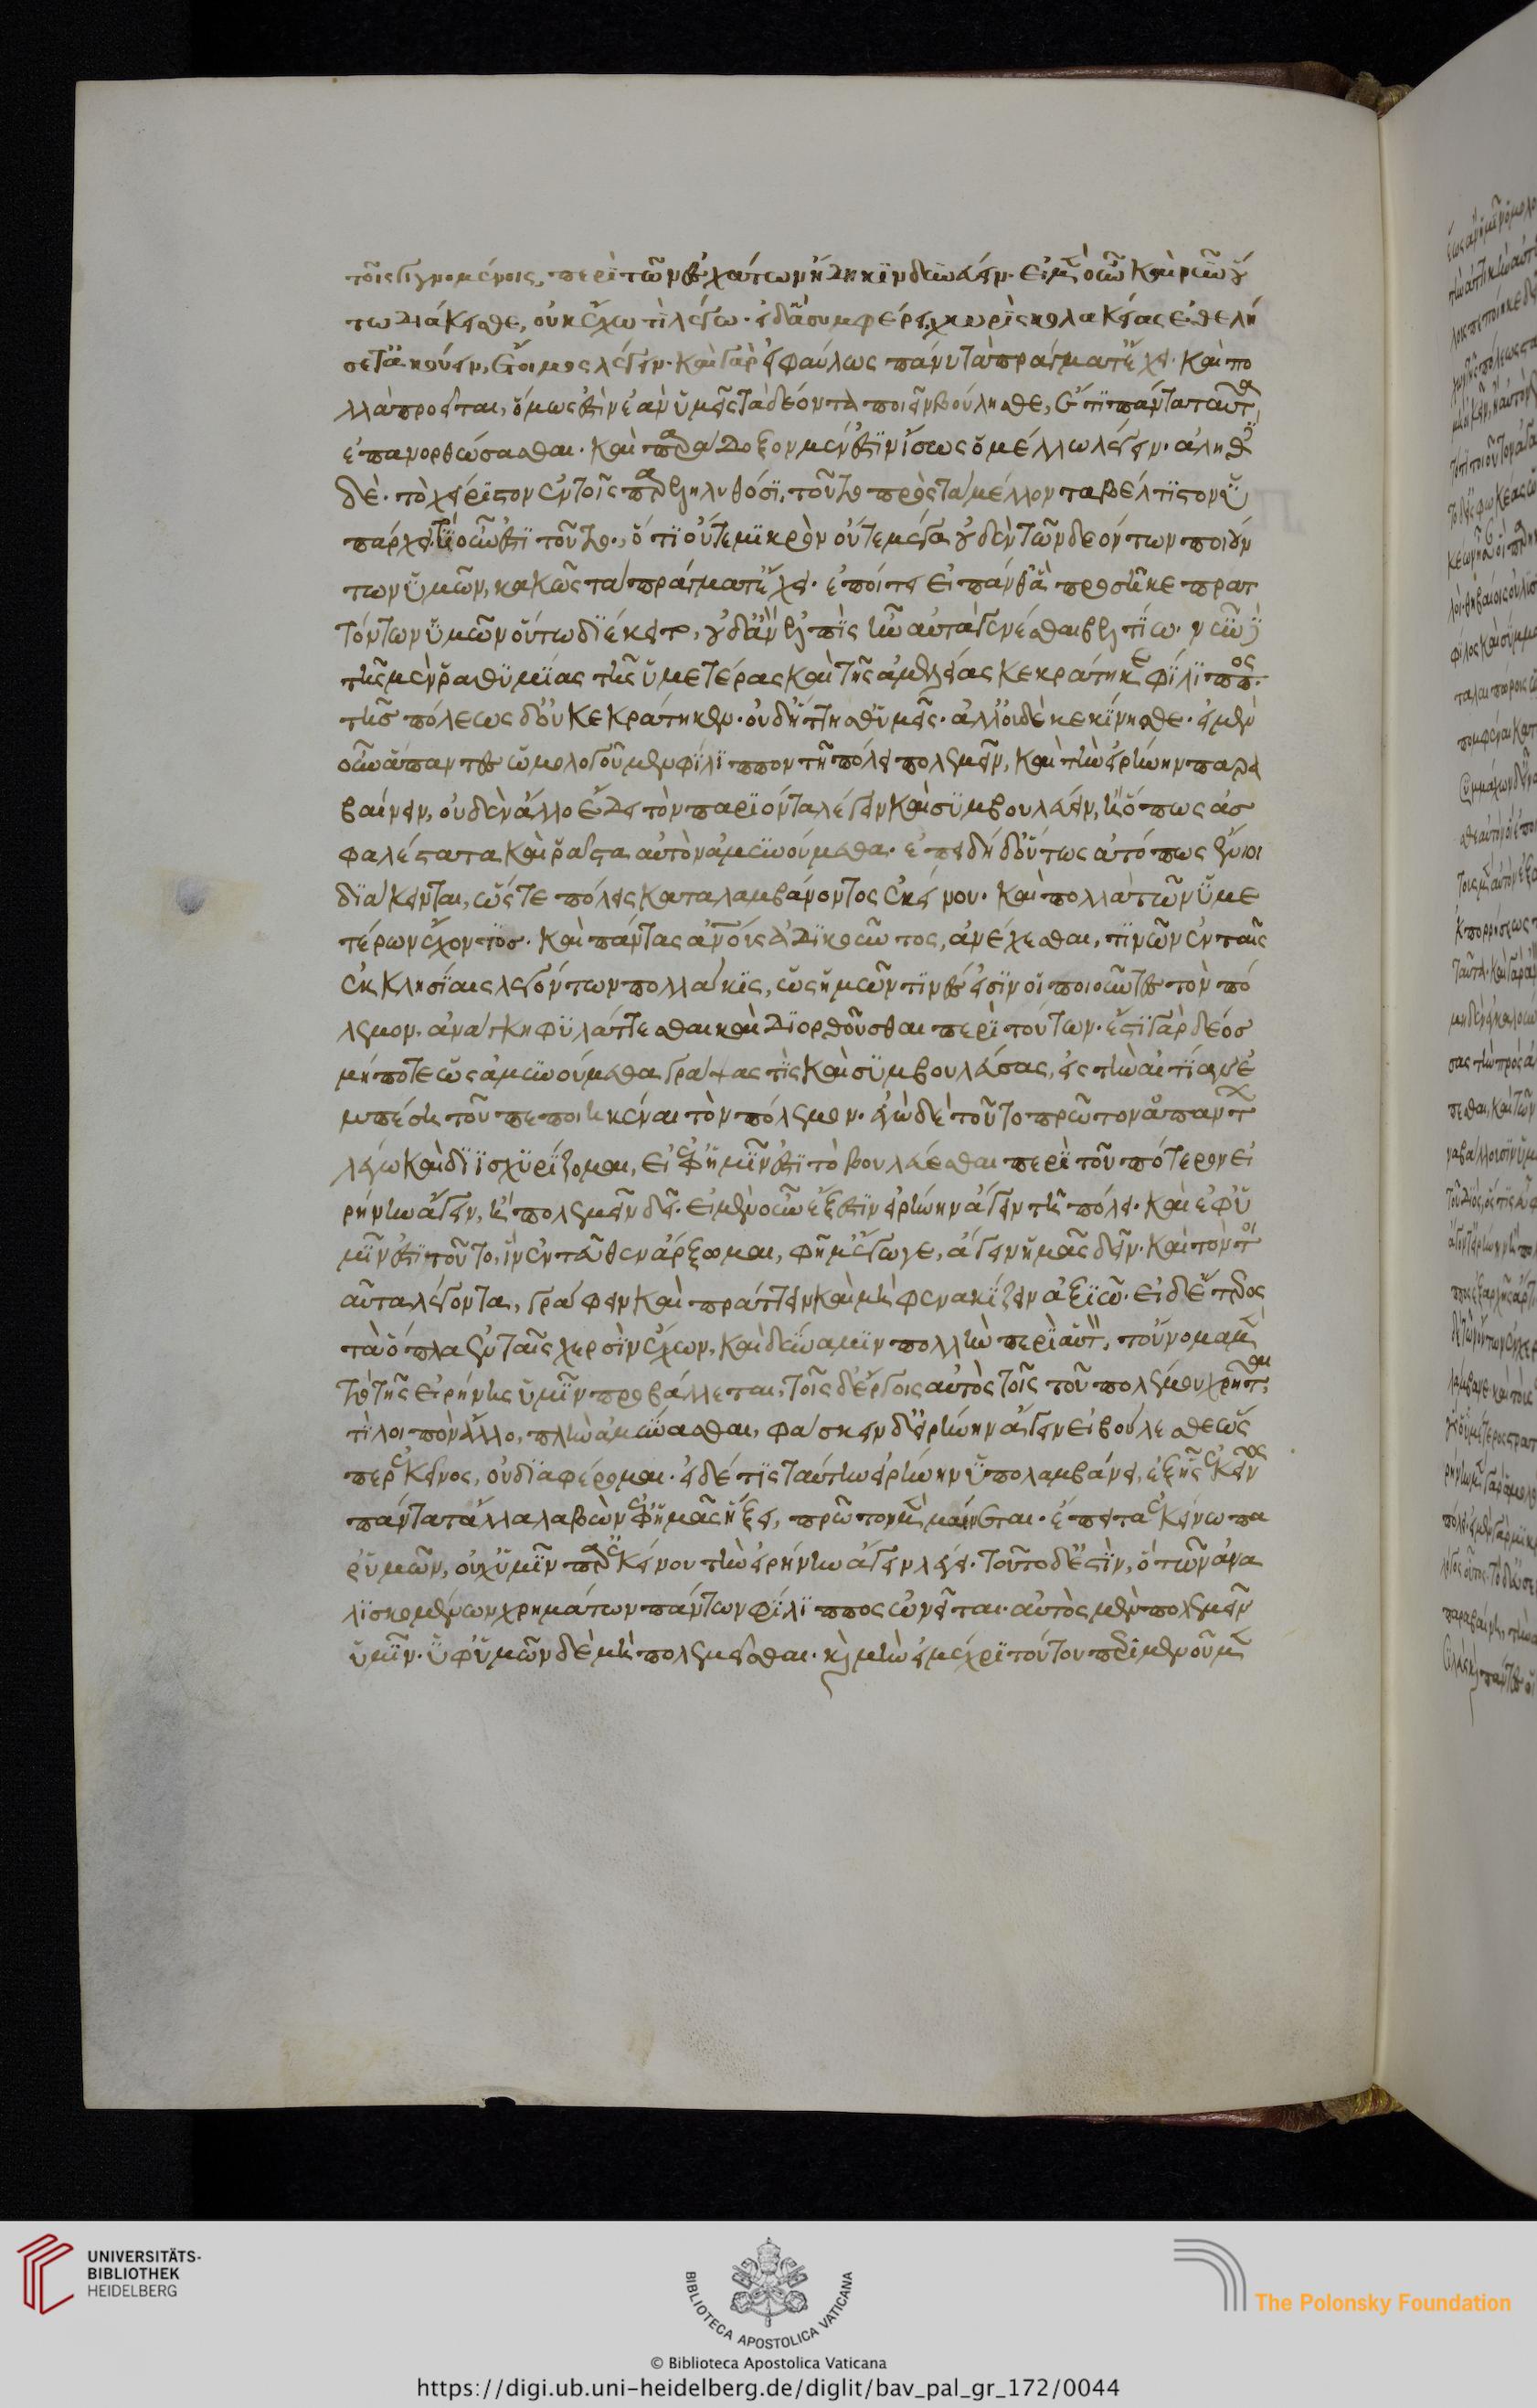 τοῖς γιγνομένοις, περὶ τῶν ἐσχάτων ἤδη κινδυνεύειν. εἰ μὲν οὖν καὶ νῦν οὕ
τω διάκεισθε, οὐκ ἔχω τί λέγω. εἰ δ' ἃ συμφέρει, χωρὶς κολακείας ἐθελή
σετ' ἀκούειν, ἕτοιμος λέγειν. καὶ γὰρ εἰ φαύλως πάνυ τὰ πράγματ' ἔχει. καὶ πο
λλὰ προεῖται, ὅμως ἐστὶν ἐὰν ὑμεῖς τὰ δέοντα ποιεῖν βούλησθε, ἔτι πάντα ταῦτα
ἐπανορθώσασθαι. καὶ παράδοξον μέν ἐστιν ἴσως ὃ μέλλω λέγειν. ἀληθὲς
δὲ. τὸ χείριστον ἐν τοῖς παρεληλυθόσι, τοῦτο πρὸς τὰ μέλλοντα βέλτιστον ὑ
πάρχει. τί οὖν ἐστι τοῦτο., ὅτι οὔτε μικρὸν οὔτε μέγα οὐδὲν τῶν δεόντων ποιούν
των ὑμῶν, κακῶς τὰ πράγματ' ἔχει. ἐπεί τοι εἰ πάνθ' ἃ προσῆκε πρατ
τόντων ὑμῶν οὕτω διέκειτο, οὐδ' ἂν ἐλπὶς ἦν αὐτὰ γενέσθαι βελτίω. νῦν δὲ
τῆς μὲν ῥαθυμίας τῆς ὑμετέρας καὶ τῆς ἀμελείας κεκράτηκε φίλιππος.
τῆς πόλεως δ' οὐ κεκράτηκεν. οὐδ' ἥττησθ' ὑμεῖς. ἀλλ' οὐδὲ κεκίνησθε. εἰ μὲν
οὖν ἅπαντες ὡμολογοῦμεν φίλιππον τῇ πόλει πολεμεῖν, καὶ τὴν εἰρήνην παρα
βαίνειν, οὐδὲν ἄλλο ἔδει τὸν παριόντα λέγειν καὶ συμβουλεύειν, ἢ ὅπως ἀσ
φαλέστατα καὶ ῥᾶστα αὐτὸν ἀμυνούμεθα. ἐπειδὴ δ' οὕτως ἀτόπως ἔνιοι
διάκεινται, ὥστε πόλεις καταλαμβάνοντος ἐκείνου. καὶ πολλὰ τῶν ὑμε
τέρων ἔχοντος. καὶ πάντας ἀνθρώπους ἀδικοῦντος, ἀνέχεσθαι, τινῶν ἐν ταῖς
ἐκκλησίαις λεγόντων πολλάκις, ὡς ἡμῶν τινές εἰσιν οἱ ποιοῦντες τὸν πό
λεμον. ἀνάγκη φυλάττεσθαι καὶ διορθοῦσθαι περὶ τούτων. ἔστι γὰρ δέος
μήποτε ὡς ἀμυνούμεθα γράψας τὶς καὶ συμβουλεύσας, εἰς τὴν αἰτίαν ἐ
μπέσῃ τοῦ πεποιηκέναι τὸν πόλεμον. ἐγὼ δὲ τοῦτο πρῶτον ἁπάντων
λέγω καὶ διισχυρίζομαι, εἰ ἐφ' ἡμῖν ἐστι τὸ βουλεύεσθαι περὶ τοῦ πότερον εἰ
ρήνην ἄγειν, ἢ πολεμεῖν δεῖ. εἰ μὲν οὖν ἔξεστιν εἰρήνην ἄγειν τῇ πόλει. καὶ ἐφ' ὑ
μῖν ἐστι τοῦτο, ἵν' ἐντεῦθεν ἄρξωμαι, φημ' ἔγωγε, ἄγειν ἡμᾶς δεῖν. καὶ τὸν τ
αῦτα λέγοντα, γράφειν καὶ πράττειν καὶ μὴ φενακίζειν ἀξιῶ. εἰ δ' ἕτερος
τὰ ὅπλα ἐν ταῖς χερσὶν ἔχων, καὶ δύναμιν πολλὴν περὶ αὑτὸν, τοὔνομα μὲν
τὸ τῆς εἰρήνης ὑμῖν προβάλλεται, τοῖς δ' ἔργοις αὐτὸς τοῖς τοῦ πολέμου χρῆται,
τί λοιπὸν ἄλλο, πλὴν ἀμύνασθαι, φάσκειν δ' εἰρήνην ἄγειν εἰ βούλεσθε ὥς
περ ἐκεῖνος, οὐ διαφέρομαι. εἰ δέ τις ταύτην εἰρήνην ὑπολαμβάνει, ἐξ ἧς ἐκεῖνος
πάντα τἄλλα λαβὼν ἐφ' ἡμᾶς ἥξει, πρῶτον μὲν μαίνεται. ἔπειτα ἐκείνω πα
ρ' ὑμῶν, οὐχ ὑμῖν παρ' ἐκείνου τὴν εἰρήνην ἄγειν λέγει. τοῦτο δ' ἐστὶν, ὃ τῶν ἀνα
λισκομένων χρημάτων πάντων φίλιππος ὠνεῖται. αὐτὸς μὲν πολεμεῖν
ὑμῖν. ὑφ' ὑμῶν δὲ μὴ πολεμεῖσθαι. καὶ μὴν εἰ μέχρι τούτου περιμενοῦμεν
UNIVERSITÄTS-
BIBLIOTHEK
HEIDELBERG
BIBLIOTECA APOSTOLICA VATICANA
The Polonsky Foundation
© Biblioteca Apostolica Vaticana
https://digi.ub.uni-heidelberg.de/diglit/bav_pal_gr_172/0044